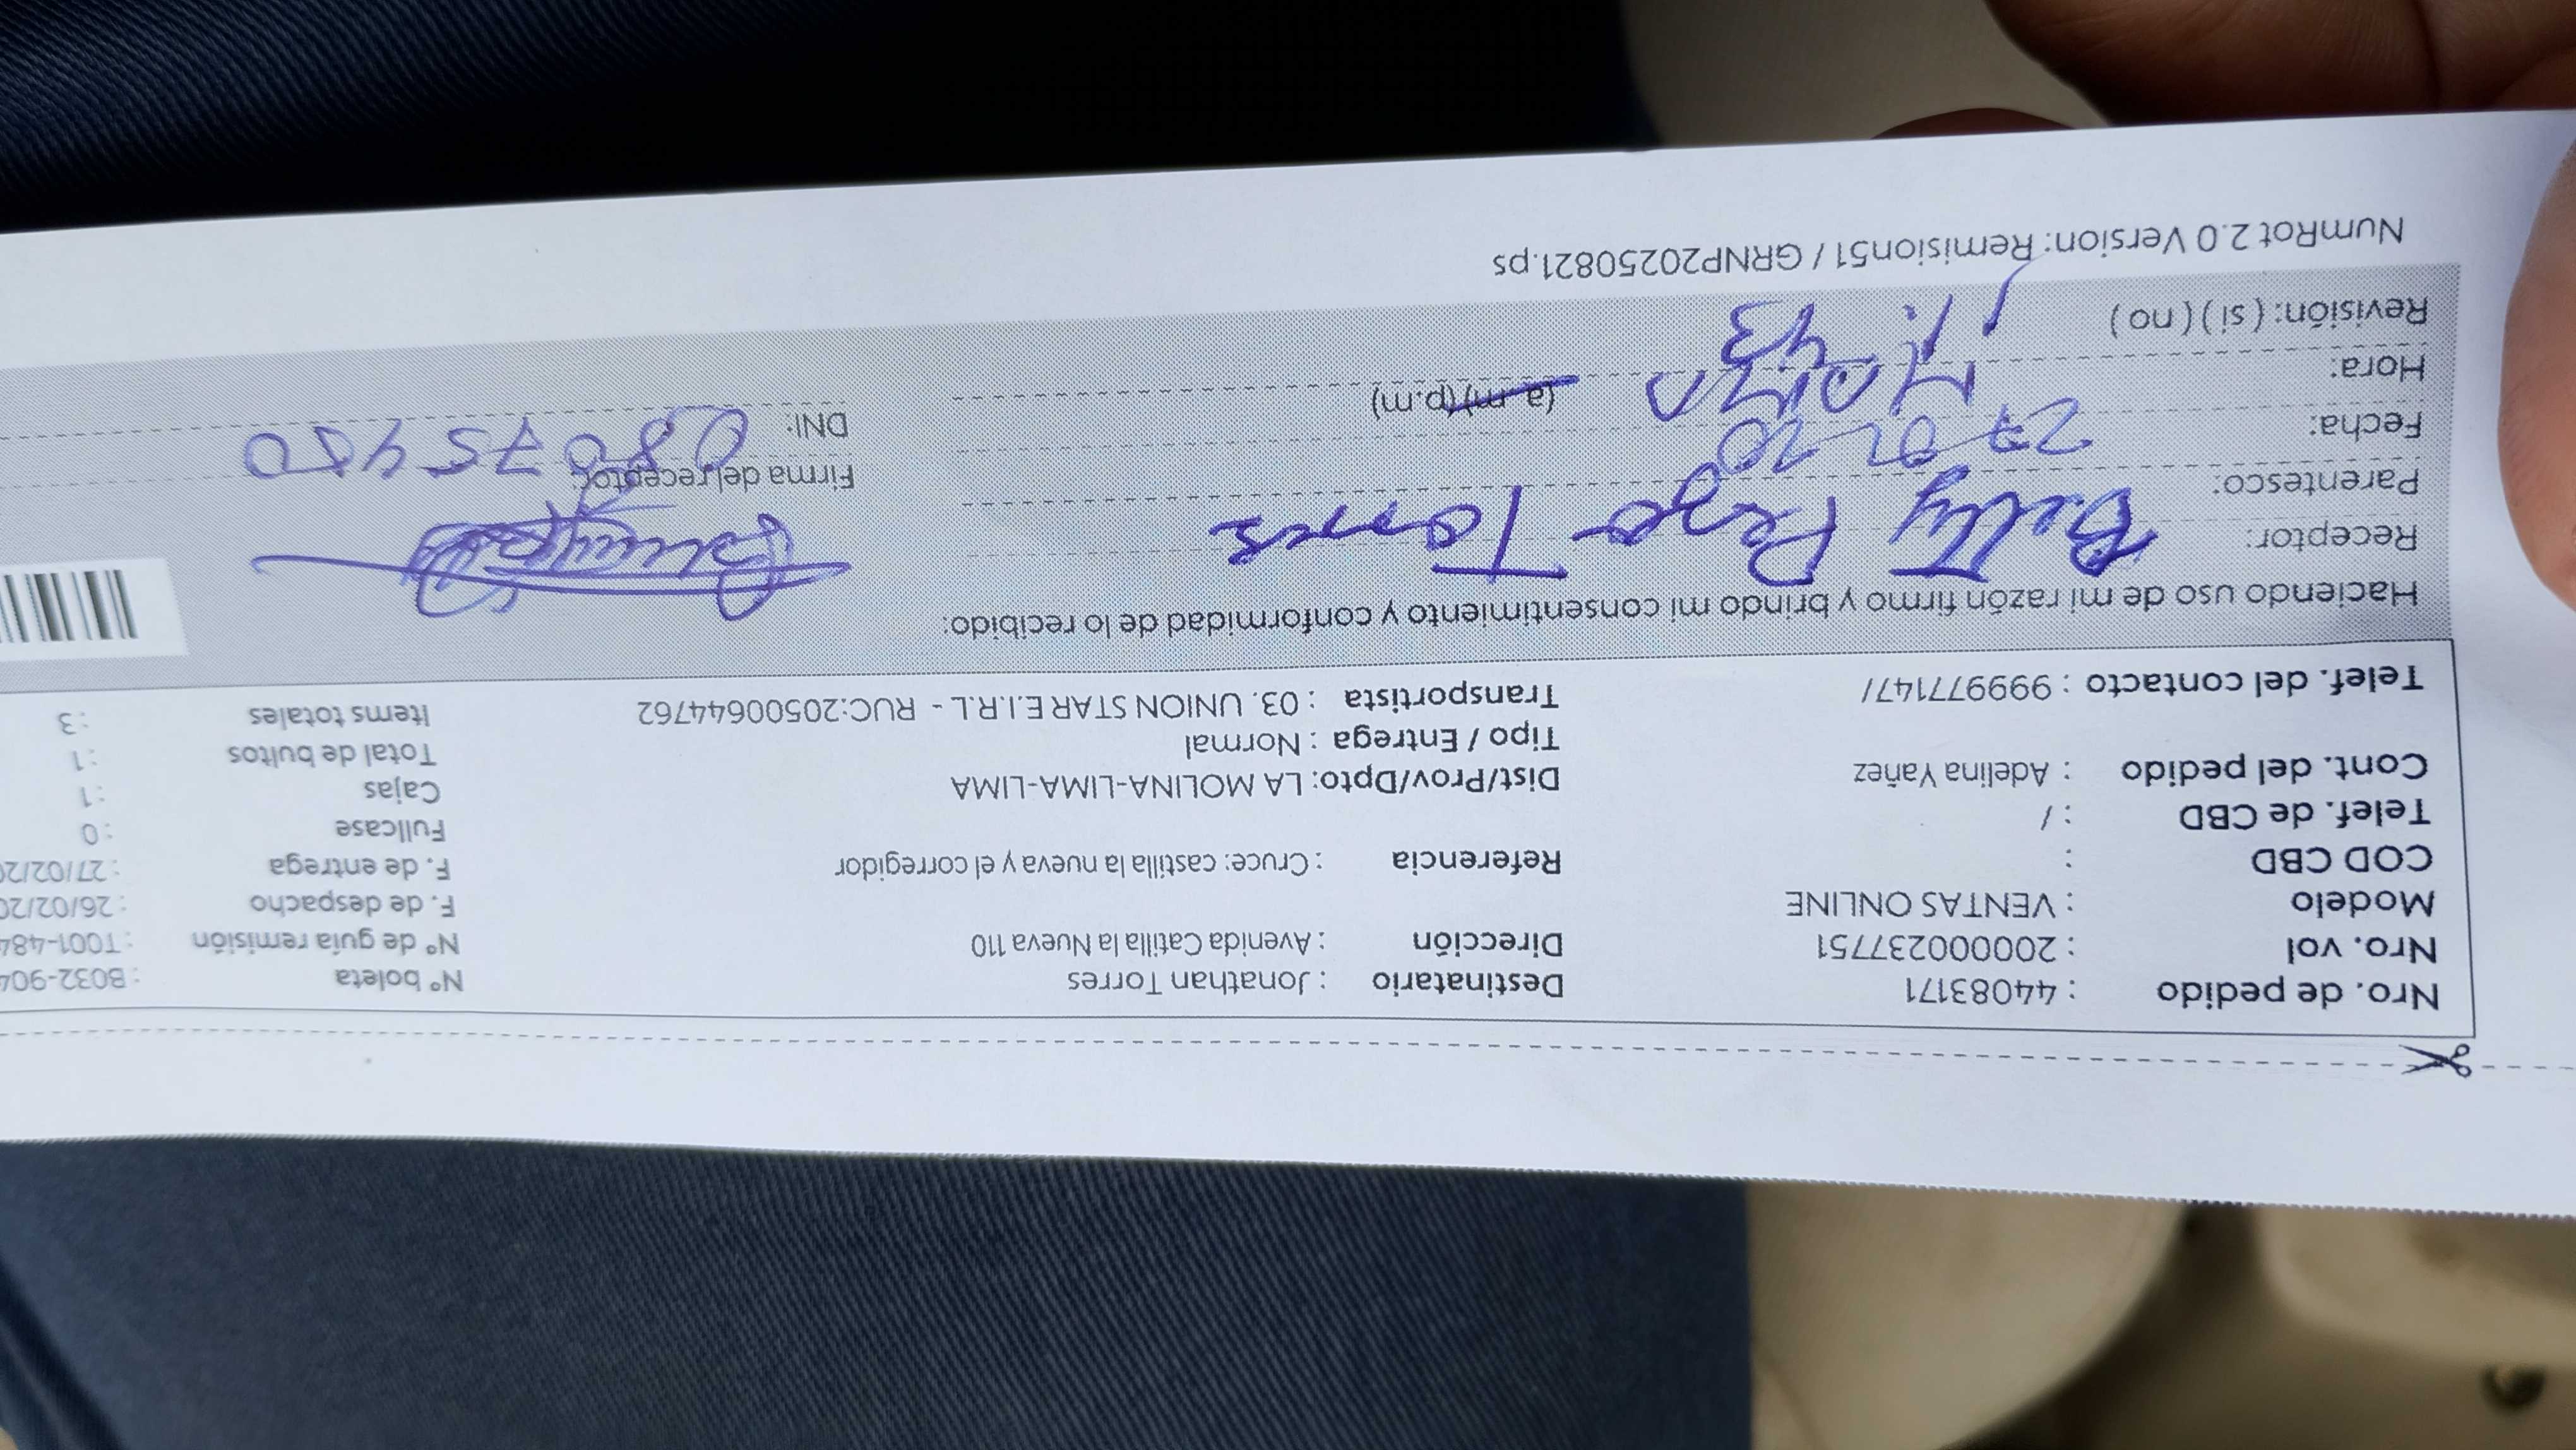 Nro. de pedido : 44083171 Destinatario : Jonathan Torres Nº boleta : B032-904
Nro. vol : 200000237751 Dirección : Avenida Catilla la Nueva 110 Nº de guía remisión : T001-484
Modelo : VENTAS ONLINE F. de despacho : 26/02/20
COD CBD : Referencia : Cruce: castilla la nueva y el corregidor F. de entrega : 27/02/20
Telef. de CBD : / Fullcase : 0
Cont. del pedido : Adelina Yañez Dist/Prov/Dpto: LA MOLINA-LIMA-LIMA Cajas : 1
Tipo / Entrega : Normal Total de bultos : 1
Telef. del contacto : 999977147/ Transportista : 03. UNION STAR E.I.R.L - RUC:20500644762 Items totales : 3
Haciendo uso de mi razón firmo y brindo mi consentimiento y conformidad de lo recibido:
Receptor: Betty Pezo Torres
Parentesco: Firma del receptor:
Fecha: 27 02 20 DNI: 08675450
Hora: (a.m) (p.m)
Revisión: ( si ) ( no )
NumRot 2.0 Version: Remision51 / GRNP20250821.ps